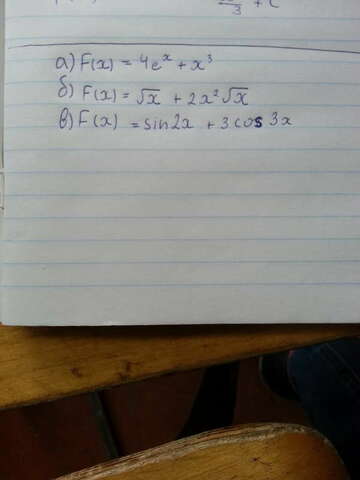 3 + C
а) F(x) = 4eˣ + x³
б) F(x) = √x + 2x²√x
в) F(x) = sin2x + 3cos3x